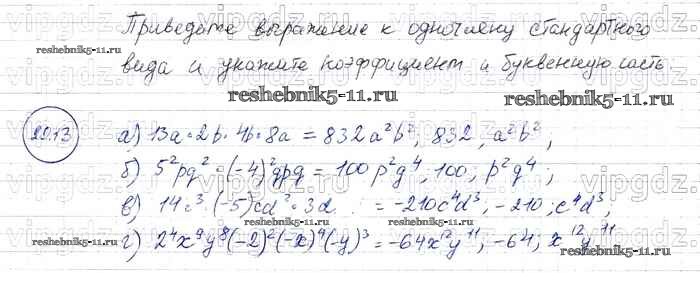 Приведите выражение к одночлену стандартного
вида и укажите коэффициент и буквенную часть
reshebnik5-11.ru
reshebnik5-11.ru
29.13
а) 13a·2b·4b·8a = 832a²b², 832, a²b²;
б) 5²pq²·(-4)²qpq = 100p²q⁴, 100, p²q⁴;
в) 14c³·(-5)cd²·3d = -210c⁴d³, -210; c⁴d³;
г) 2⁴x⁹y⁸(-2)²(-x)⁴(-y)³ = -64x¹²y¹¹, -64; x¹²y¹¹
reshebnik5-11.ru
reshebnik5-11.ru
reshebnik5-11.ru